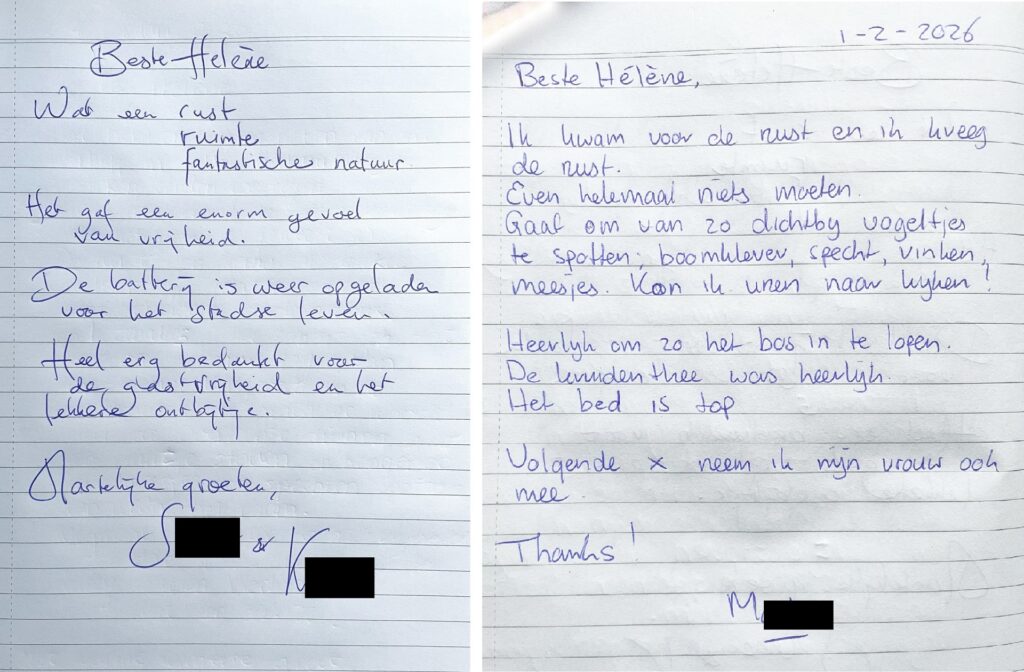 Beste Helène
Wat een rust
ruimte
fantastische natuur
Het gaf een enorm gevoel
van vrijheid.
De batterij is weer opgeladen
voor het stadse leven.
Heel erg bedankt voor
de gastvrijheid en het
lekkere ontbijtje.
Hartelijke groeten,
S & K
1-2-2026
Beste Hélène,
Ik kwam voor de rust en ik kreeg
de rust.
Even helemaal niets moeten.
Gaaf om van zo dichtby vogeltjes
te spotten; boomklever, specht, vinken,
meesjes. Kon ik uren naar kyken!
Heerlyk om zo het bos in te lopen.
De kruidenthee was heerlyk.
Het bed is top
Volgende x neem ik mijn vrouw ook
mee.
Thanks!
M